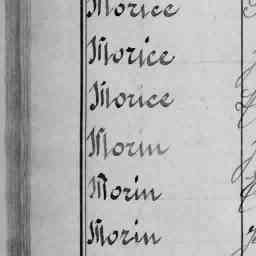 Morice
Morice
Morice
Morin
Morin
Morin